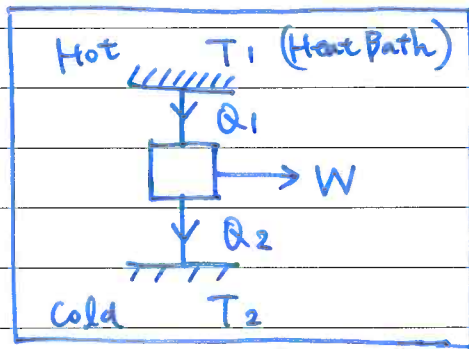 Hot T1 (Heat Bath)
Q1
W
Q2
Cold T2